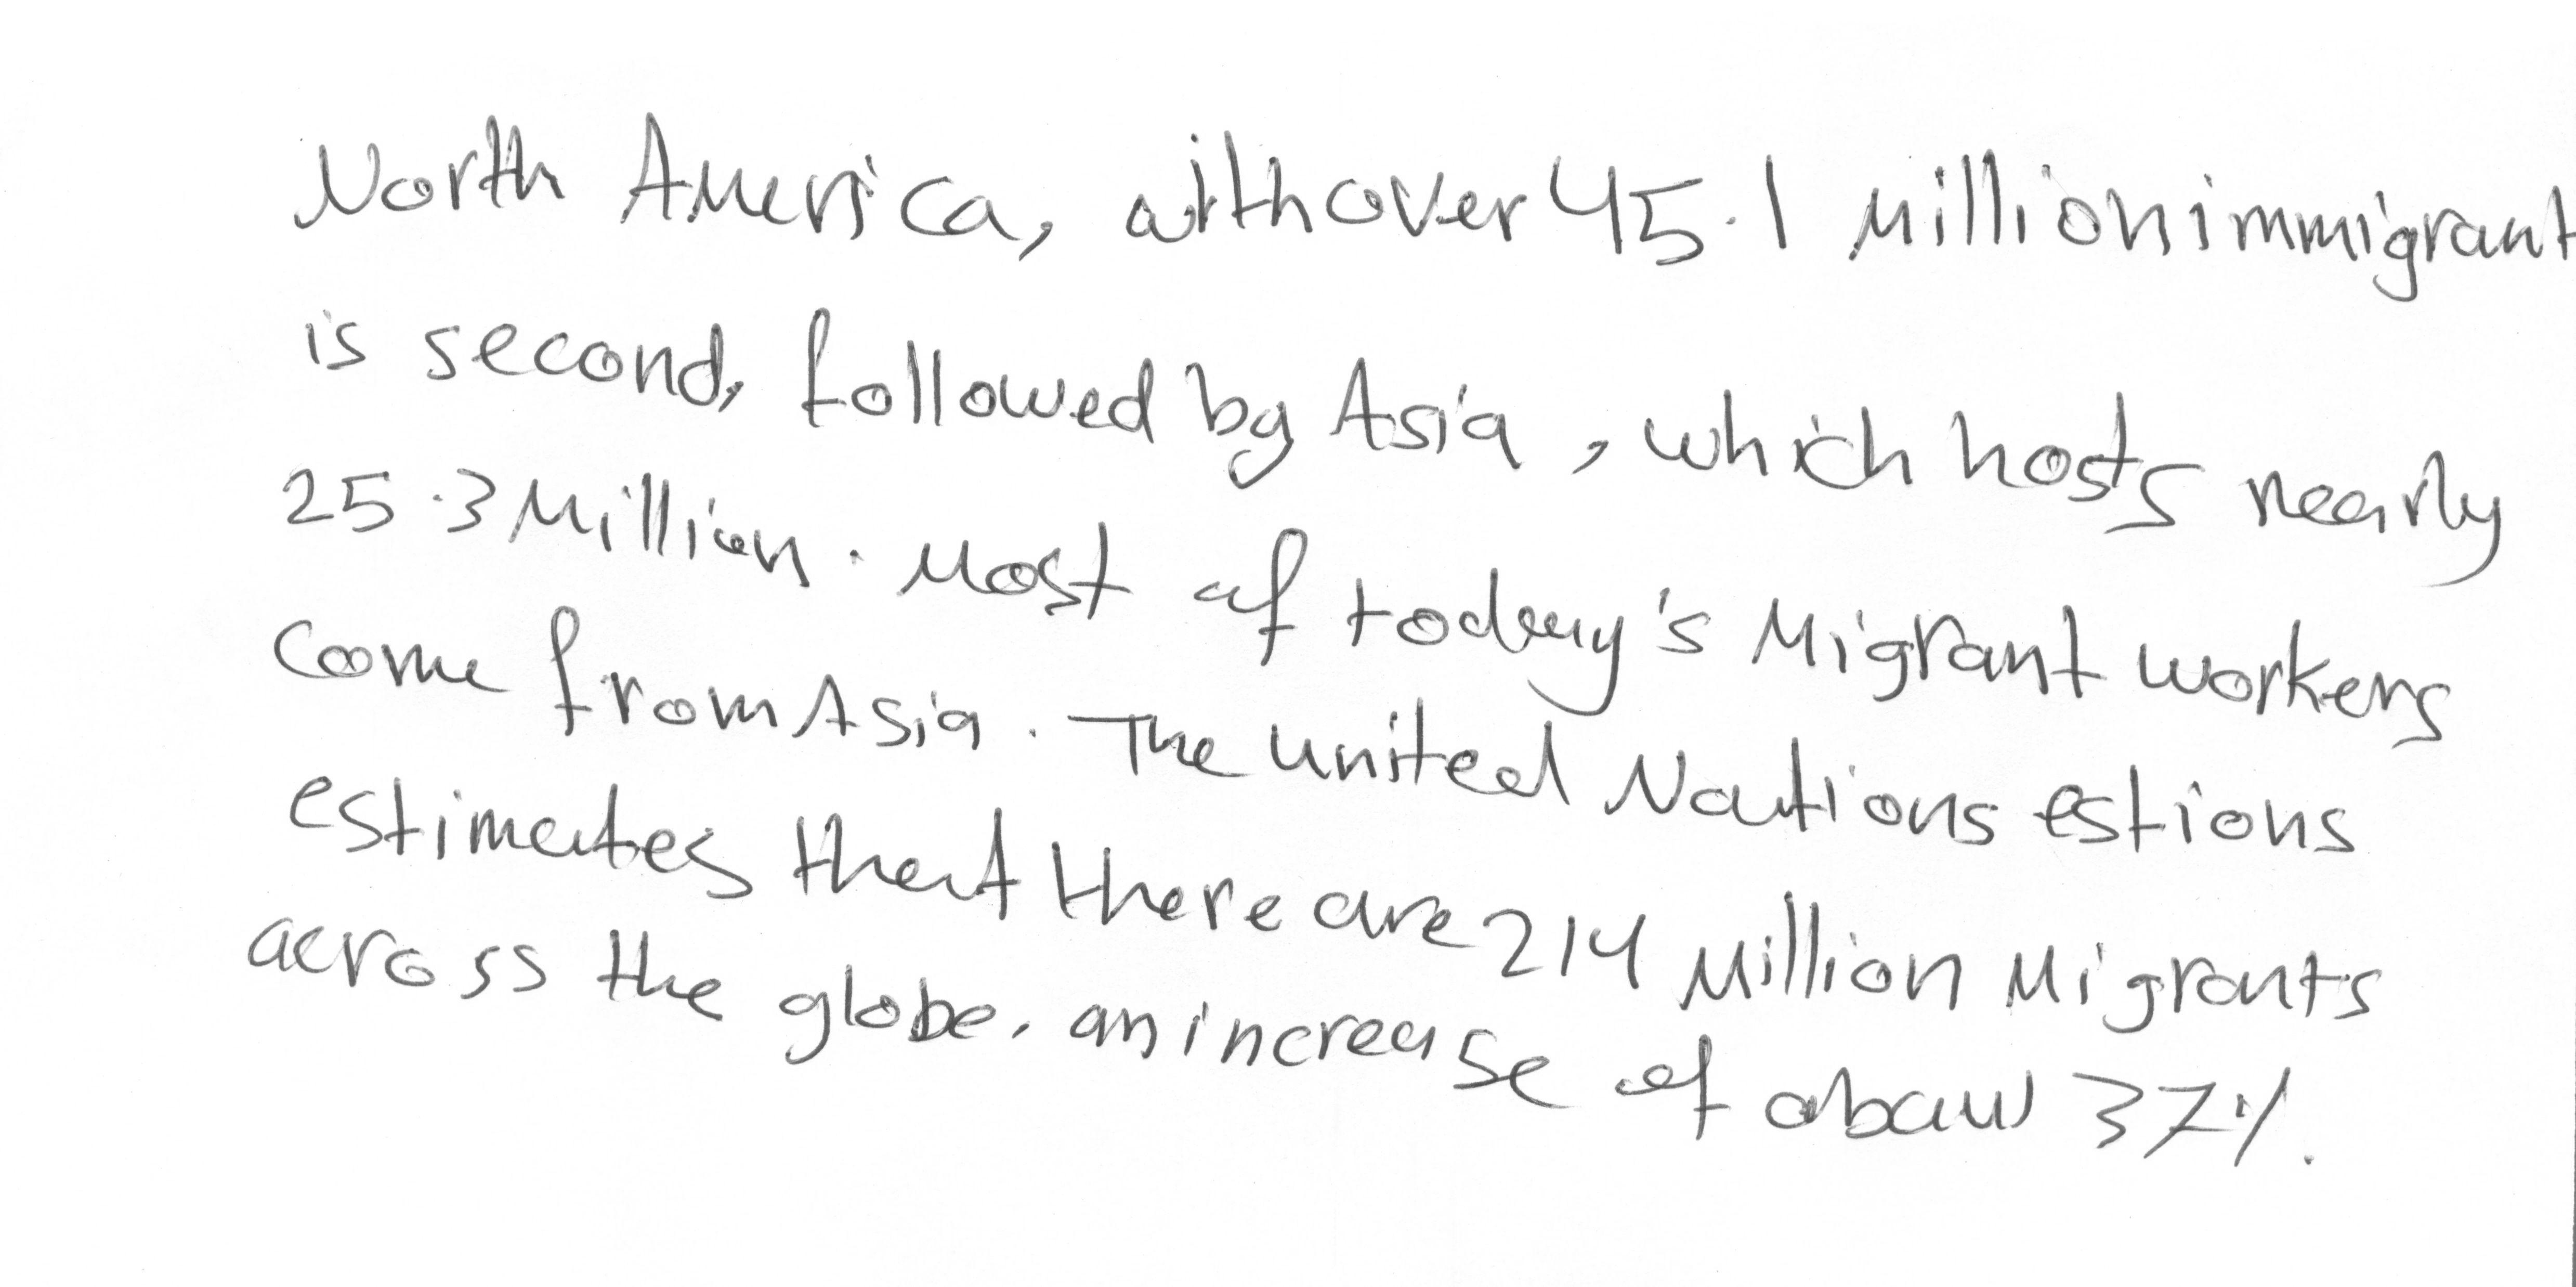 North America, with over 45.1 Million immigrant
is second, followed by Asia, which hosts nearly
25.3 Million. Most of today's Migrant workers
come from Asia. The united Nations estions
estimates that there are 214 Million Migrants
across the globe, an increase of abauw 37%.